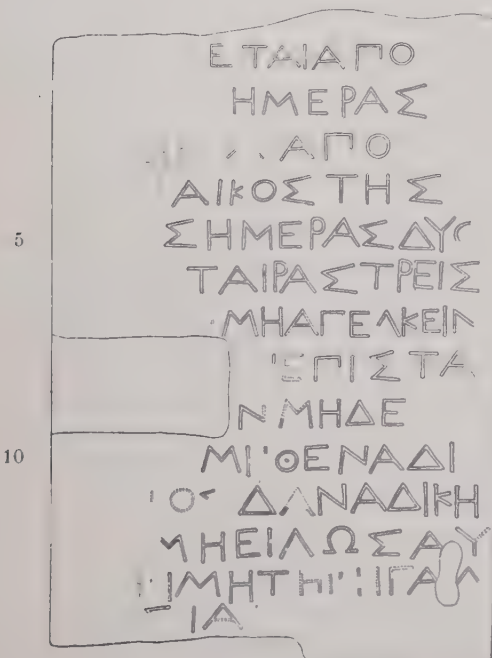 ΕΤΑΙΑΠΟ
ΗΜΕΡΑΣ
ΑΠΟ
ΑΙΚΟΣΤΗΣ
5 ΣΗΜΕΡΑΣΔΥΟ
ΤΑΙΡΑΣΤΡΕΙΣ
ΜΗΑΓΕΛΚΕΙΝ
ΕΠΙΣΤΑ
ΝΜΗΔΕ
10 ΜΙΘΕΝΑΔΙ
ΔΑΝΑΔΙΚΗ
ΗΕΙΛΩΣΑΥ
ΙΜΗΤΗ
ΙΑ